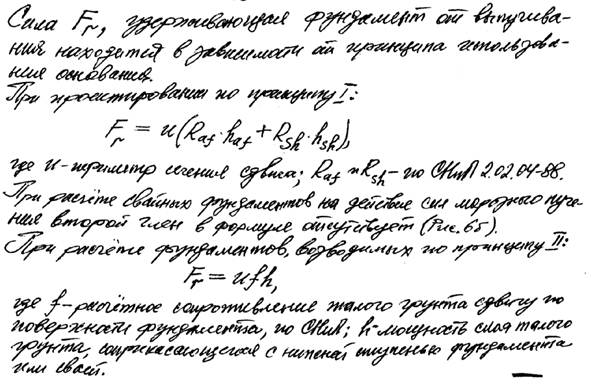 Сила Fr, удерживающая фундамент от выпучива-
ния находится в зависимости от принципа использова-
ния основания.
При проектировании по принципу I:
Fr = u(Raf·haf + Rsh·hsh),
где u - периметр сечения сдвига; Raf и Rsh - по СНиП 2.02.04-88.
При расчёте свайных фундаментов на действие сил морозного пуче-
ния второй член в формуле отсутствует (Рис. 65).
При расчёте фундаментов, возводимых по принципу II:
Fr = ufh,
где f - расчётное сопротивление талого грунта сдвигу по
поверхности фундамента, по СНиП; h - мощность слоя талого
грунта, соприкасающегося с нижней ступенью фундамента
или сваей.